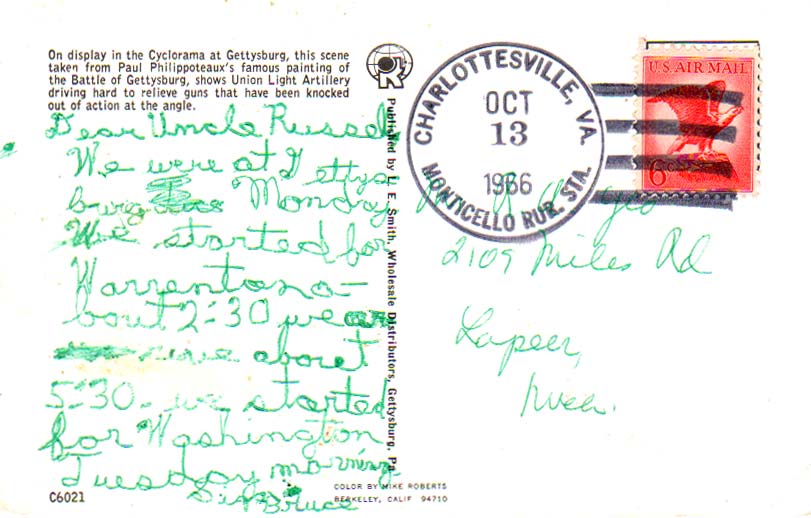 On display in the Cyclorama at Gettysburg, this scene
taken from Paul Philippoteaux's famous painting of
the Battle of Gettysburg, shows Union Light Artillery
driving hard to relieve guns that have been knocked
out of action at the angle.
Dear Uncle Russel
We were at Gettys
burg Monday
We started for
Warrenton a-
bout 2:30 we
about
5:30. we started
for Washington
Tuesday morning
Bruce
C6021
Published by L. E. Smith, Wholesale Distributors, Gettysburg, Pa.
COLOR BY MIKE ROBERTS
BERKELEY, CALIF 94710
CHARLOTTESVILLE, VA.
OCT
13
1966
MONTICELLO RUR. STA.
U.S. AIR MAIL
6
2109 Miles Rd
Lapeer,
Mich.